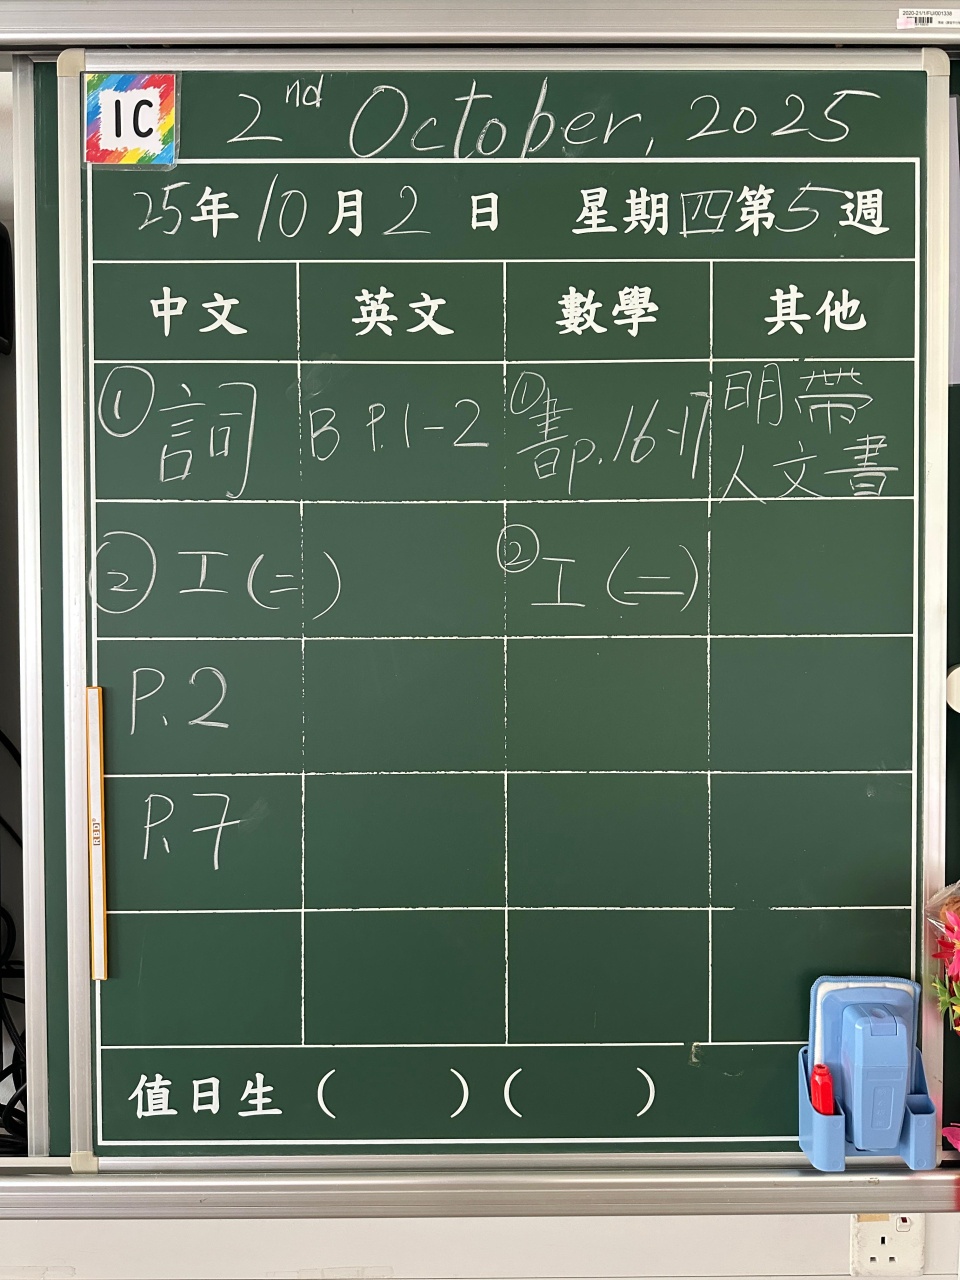 2020-21/1/FU/001336
1C
2nd October, 2025
25年10月2日 星期四第5週
中文 英文 數學 其他
① 詞 B P.1-2 ① 書p.16-17 明帶
人文書
② 工(二) ② 工(二)
P.2
P.7
值日生 ( ) ( )